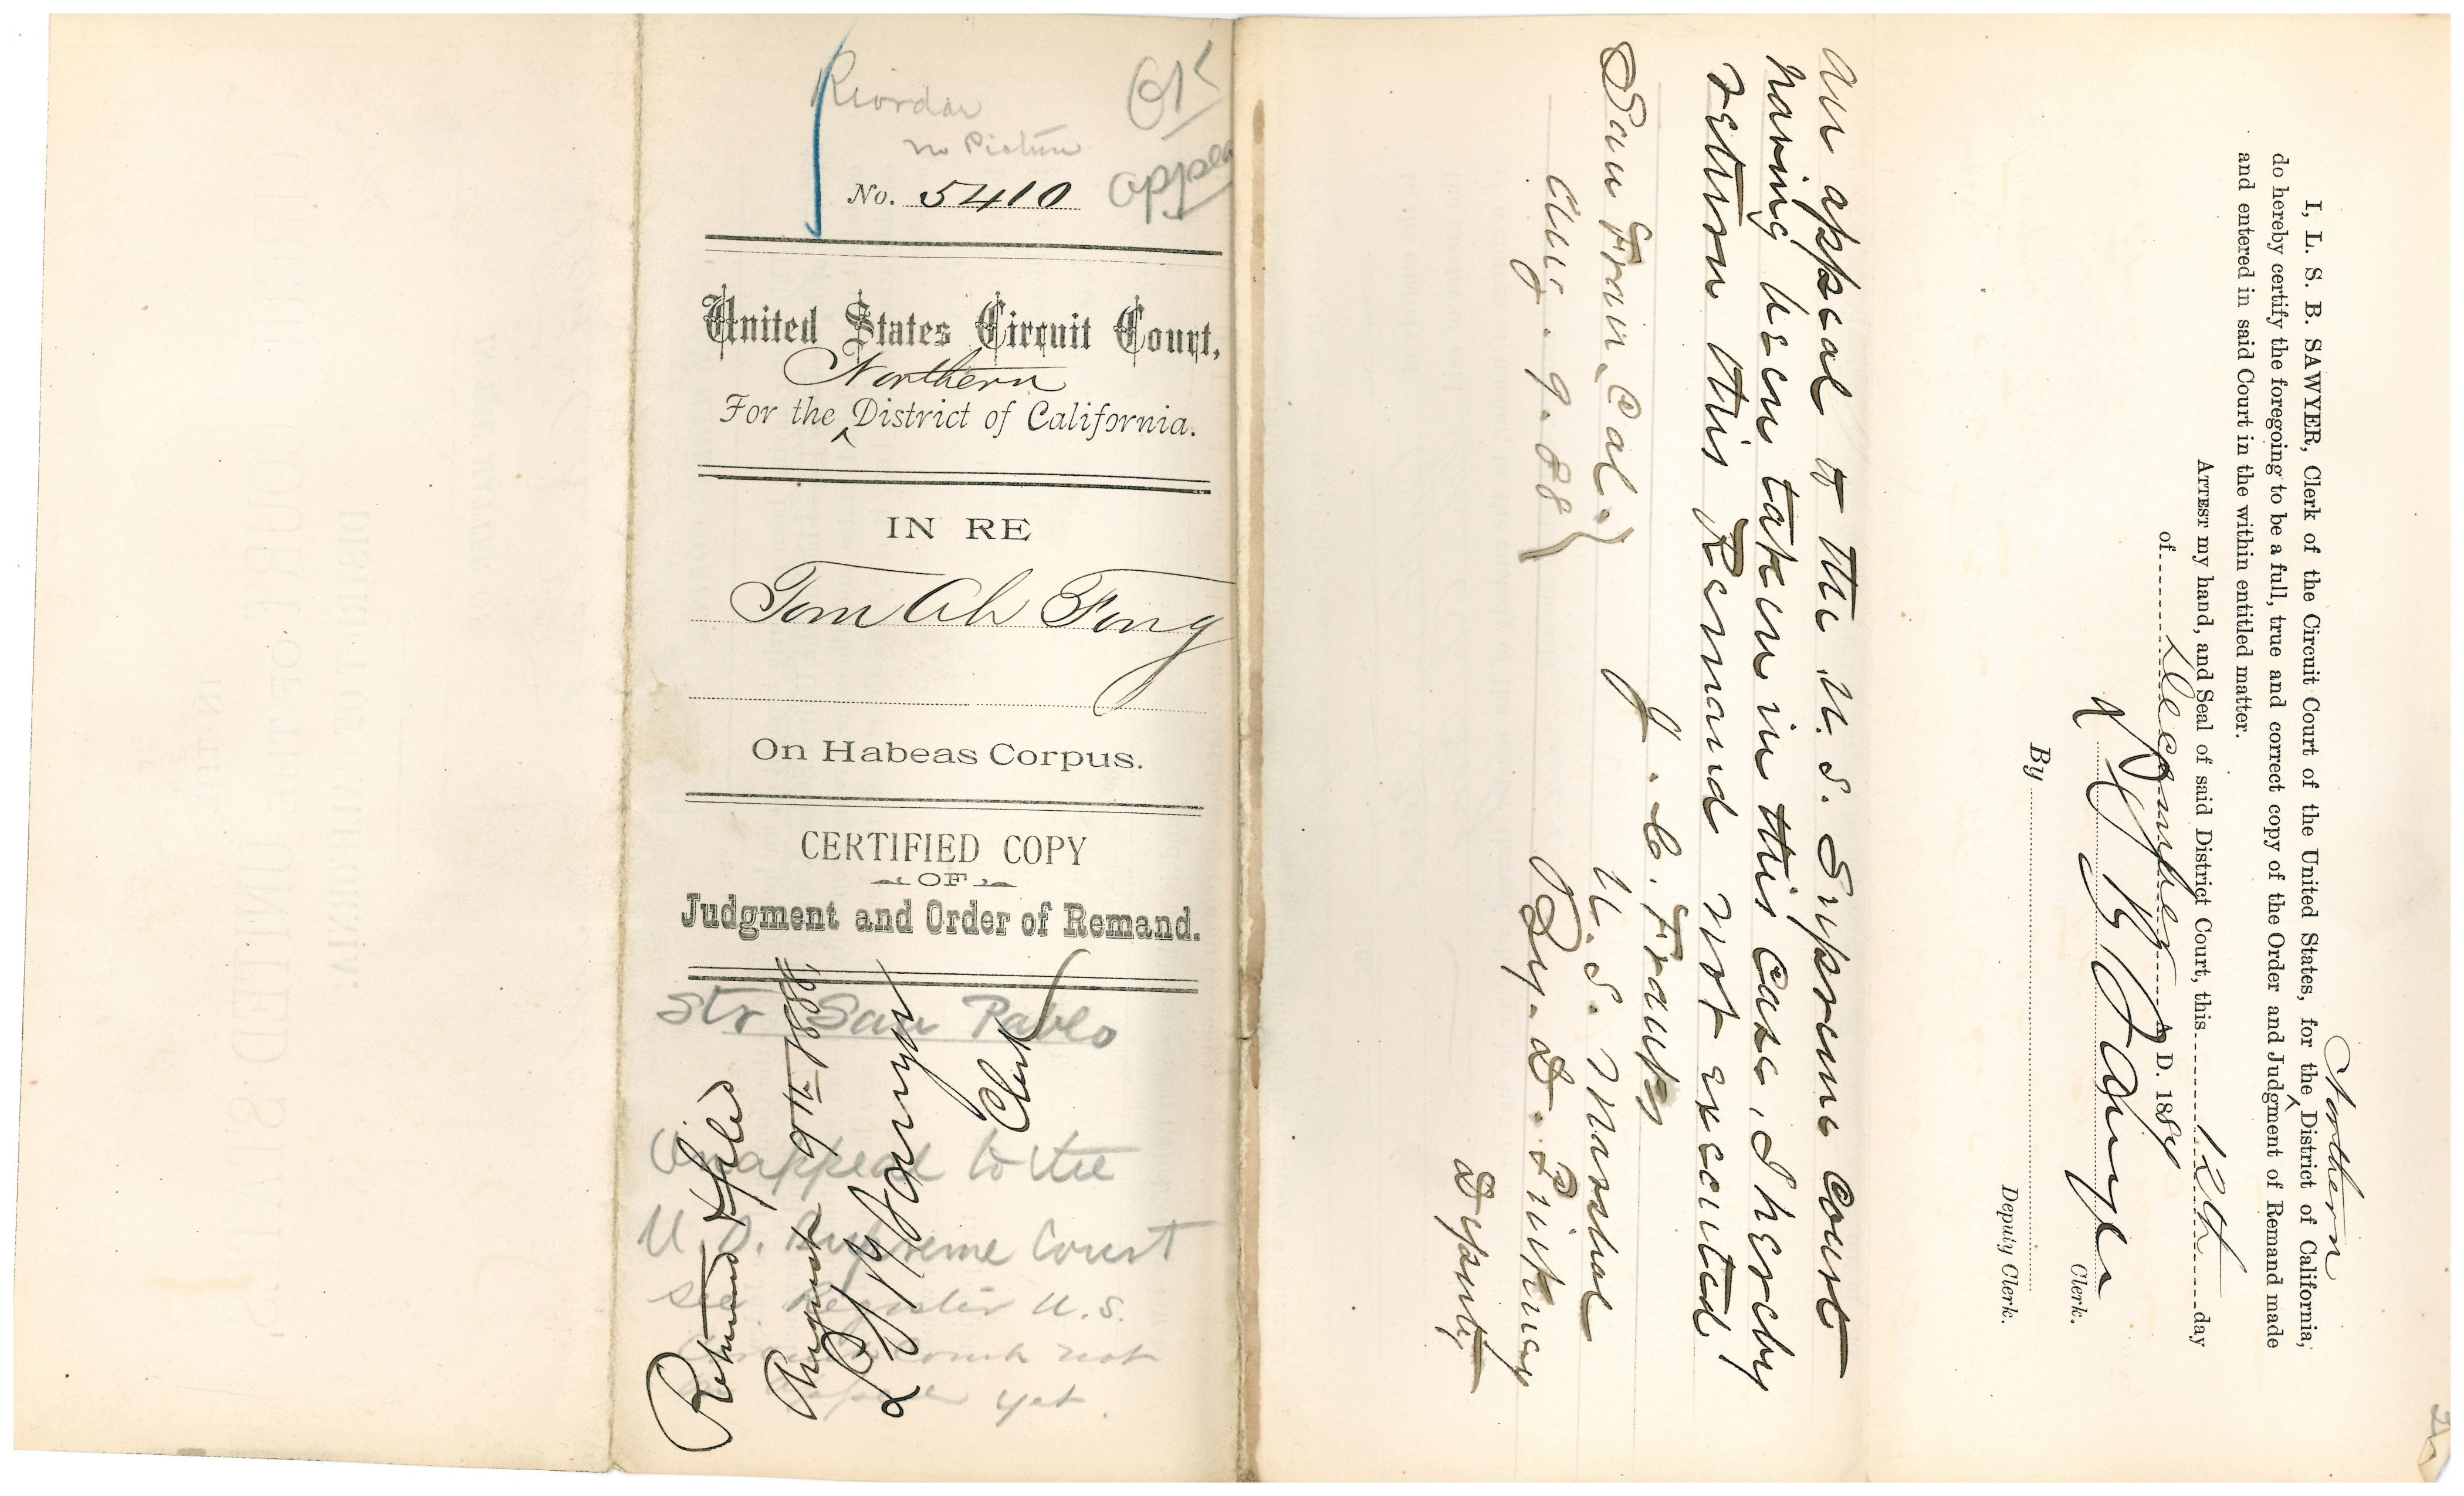 Riordan
no Picture
OK
appea
No. 5410
United States Circuit Court,
Northern
For the ^ District of California.
IN RE
Tom Ah Fong
On Habeas Corpus.
CERTIFIED COPY
OF
Judgment and Order of Remand.
Str San Pablo
On appeal to the
U. S. Supreme Court
See Register U.S.
Court not
yet.
Returned & filed
August 9th 1888
Clerk
An appeal to the U. S. Supreme Court
having been taken in this Case, I hereby
return this Remand not executed
J. C. Franks
San Fran. Cal. } U. S. Marshal
Aug. 9. 88 } By. D. Pinkney
Deputy
Northern
I, L. S. B. SAWYER, Clerk of the Circuit Court of the United States, for the ^ District of California,
do hereby certify the foregoing to be a full, true and correct copy of the Order and Judgment of Remand made
and entered in said Court in the within entitled matter.
ATTEST my hand, and Seal of said District Court, this 12th day
of December A. D. 188
L S B Sawyer
Clerk.
By
Deputy Clerk.